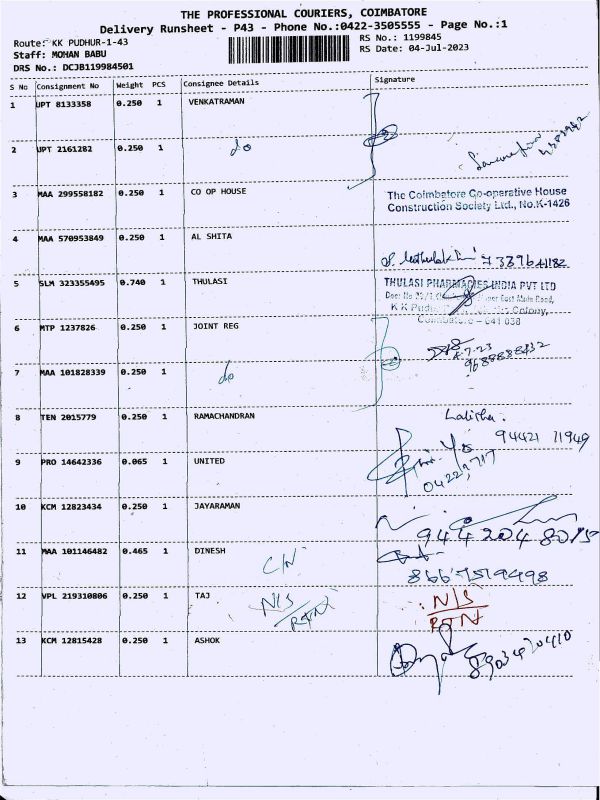 THE PROFESSIONAL COURIERS, COIMBATORE
Delivery Runsheet - P43 - Phone No.:0422-3505555 - Page No.:1
Route: KK PUDHUR-1-43 RS No.: 1199845
Staff: MOHAN BABU RS Date: 04-Jul-2023
DRS No.: DCJB119984501
S No Consignment No Weight PCS Consignee Details Signature
1 UPT 8133358 0.250 1 VENKATRAMAN
2 UPT 2161282 0.250 1 do
3 MAA 299558182 0.250 1 CO OP HOUSE The Coimbatore Co-operative House
Construction Society Ltd., No.K-1426
4 MAA 570953849 0.250 1 AL SHITA
5 SLM 323355495 0.740 1 THULASI THULASI PHARMACIES INDIA PVT LTD
East Main Road,
Colony,
Coimbatore - 641 038
6 MTP 1237826 0.250 1 JOINT REG
9688888432
7 MAA 101828339 0.250 1 do
8 TEN 2015779 0.250 1 RAMACHANDRAN Lalitha.
94421 11949
9 PRO 14642336 0.065 1 UNITED
10 KCM 12823434 0.250 1 JAYARAMAN
944 204 8015
11 MAA 101146482 0.465 1 DINESH C/N
8667519498
12 VPL 219310806 0.250 1 TAJ N/S RTN N/S
RTN
13 KCM 12815428 0.250 1 ASHOK 8903420410